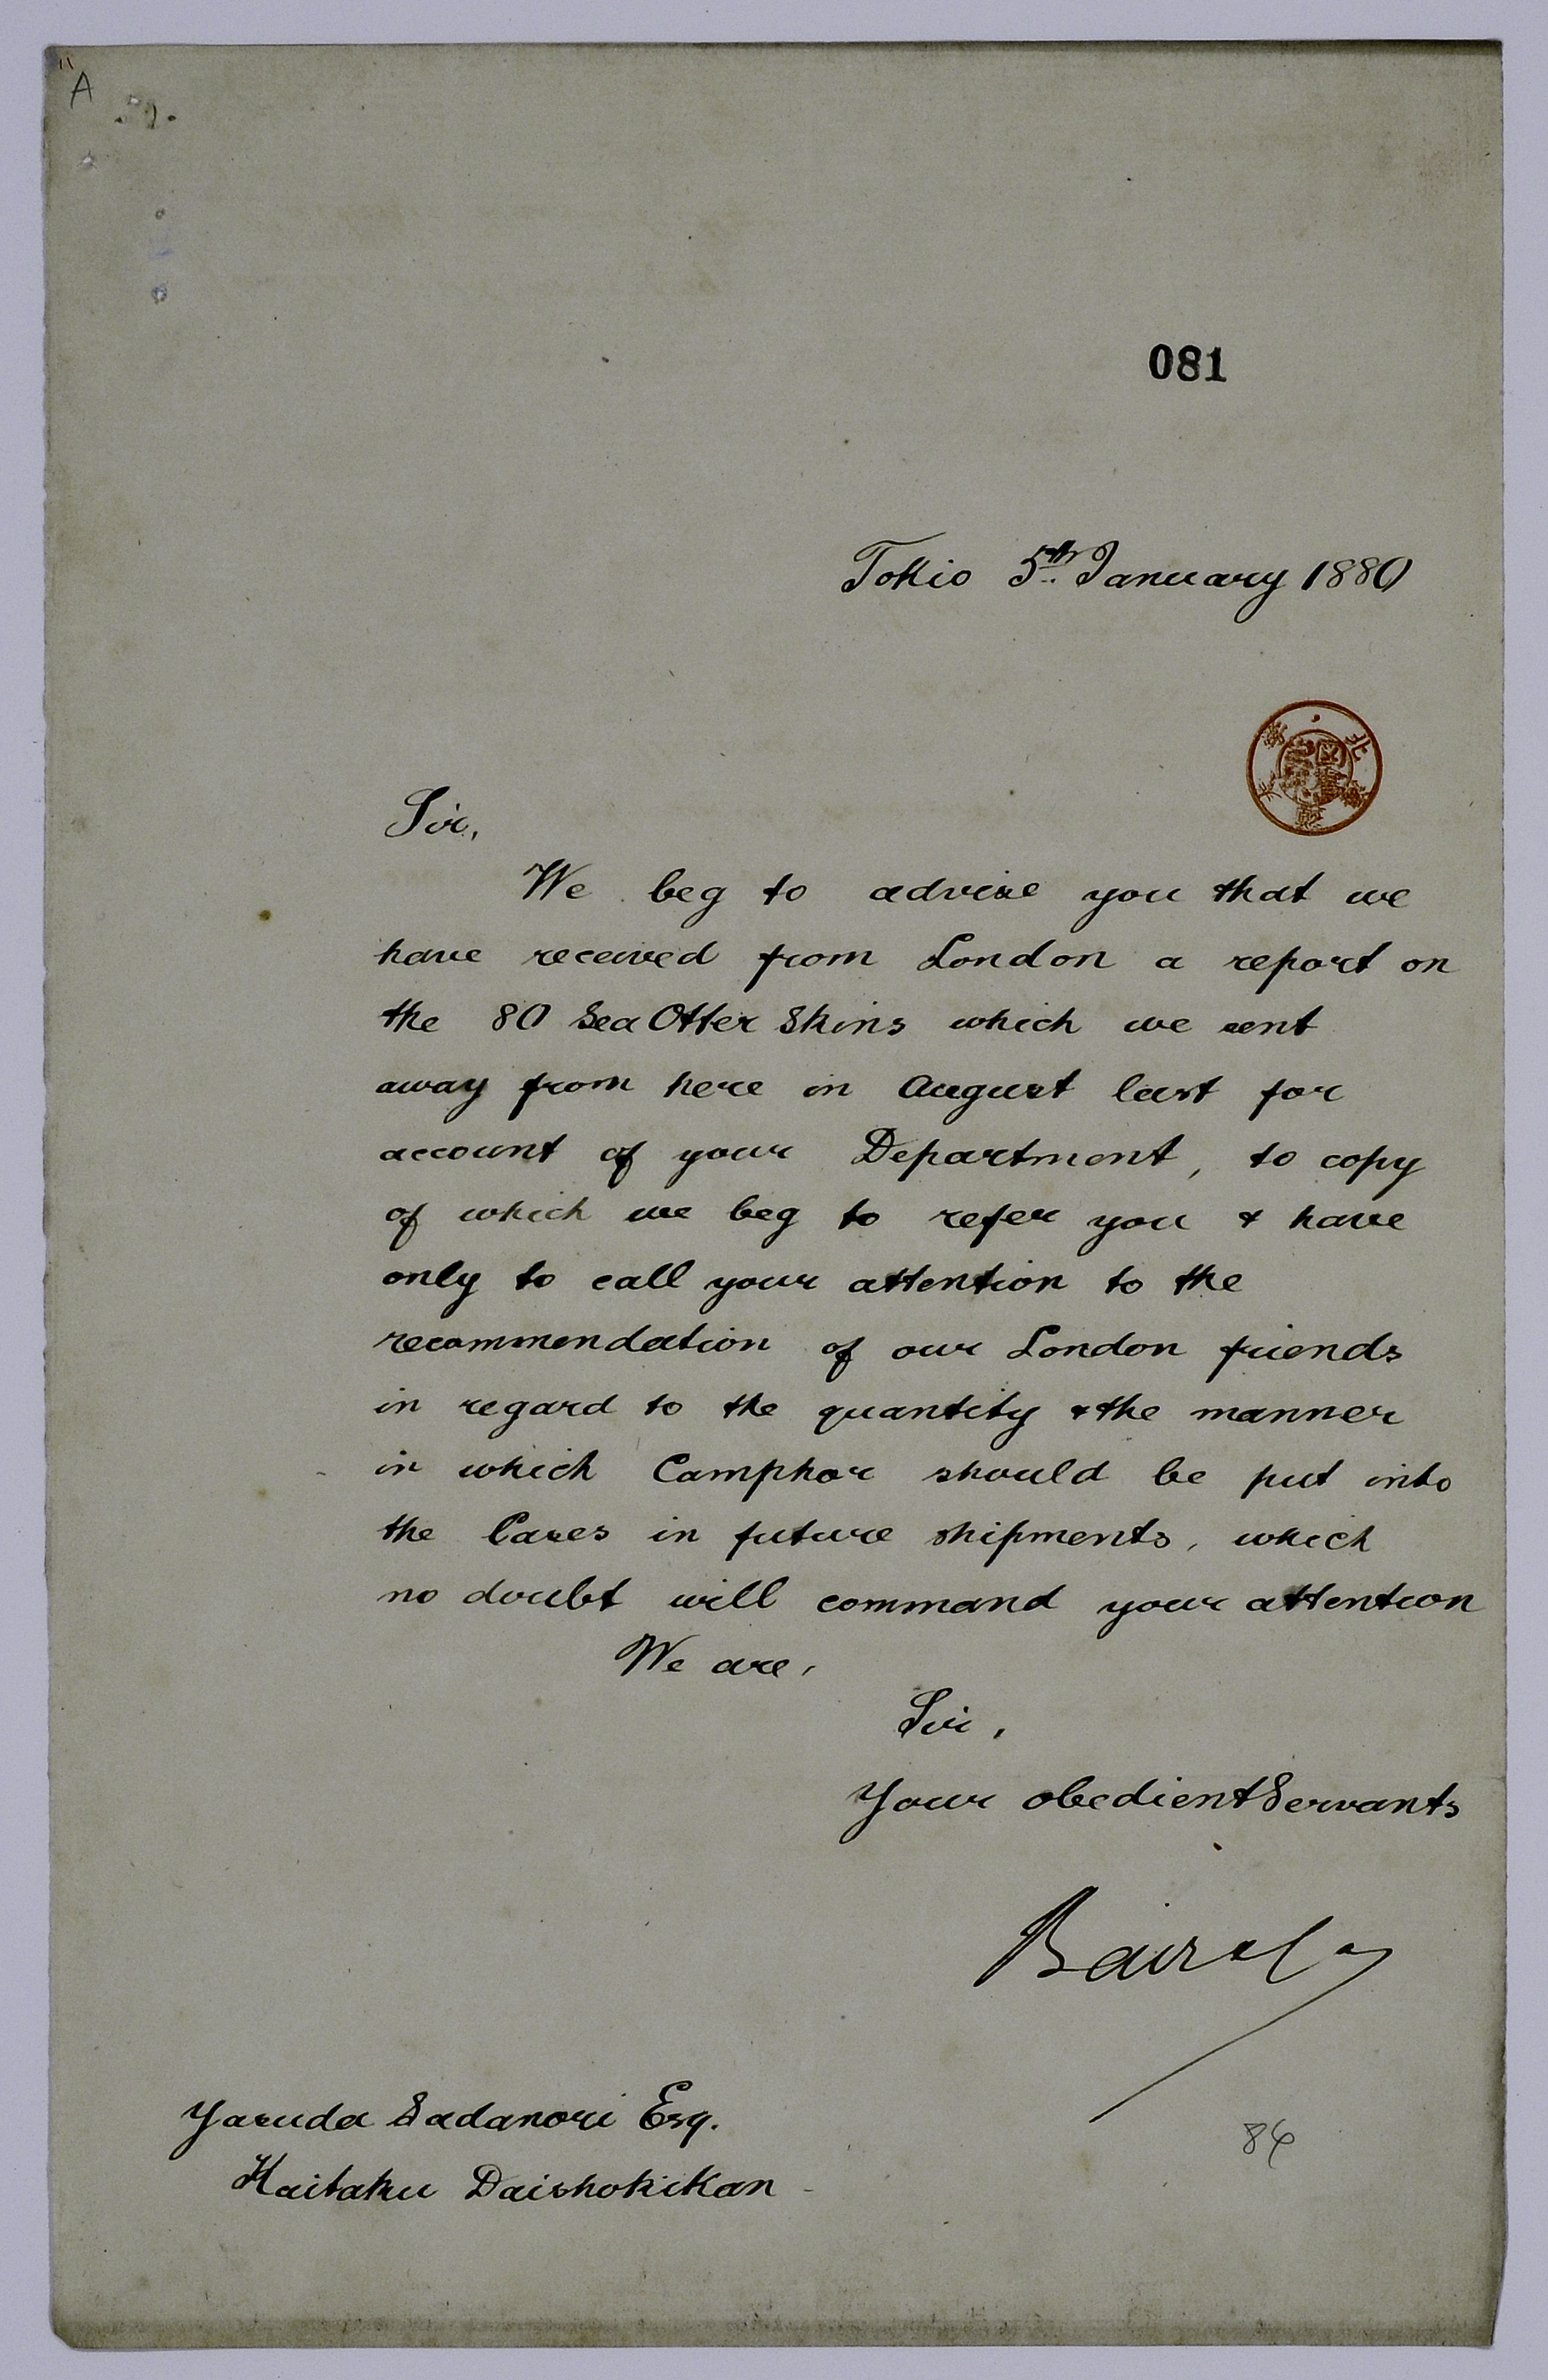 "A
081
Tokio 5th January 1880
Sir,
We beg to advise you that we
have received from London a report on
the 80 Sea Otter Skins which we sent
away from here in August last for
account of your Department, to copy
of which we beg to refer you & have
only to call your attention to the
recommendation of our London friends
in regard to the quantity & the manner
in which Camphor should be put into
the Cases in future shipments, which
no doubt will command your attention
We are,
Sir,
Your obedient Servants
Yasuda Sadanori Esq.
Kaitaku Daishokikan